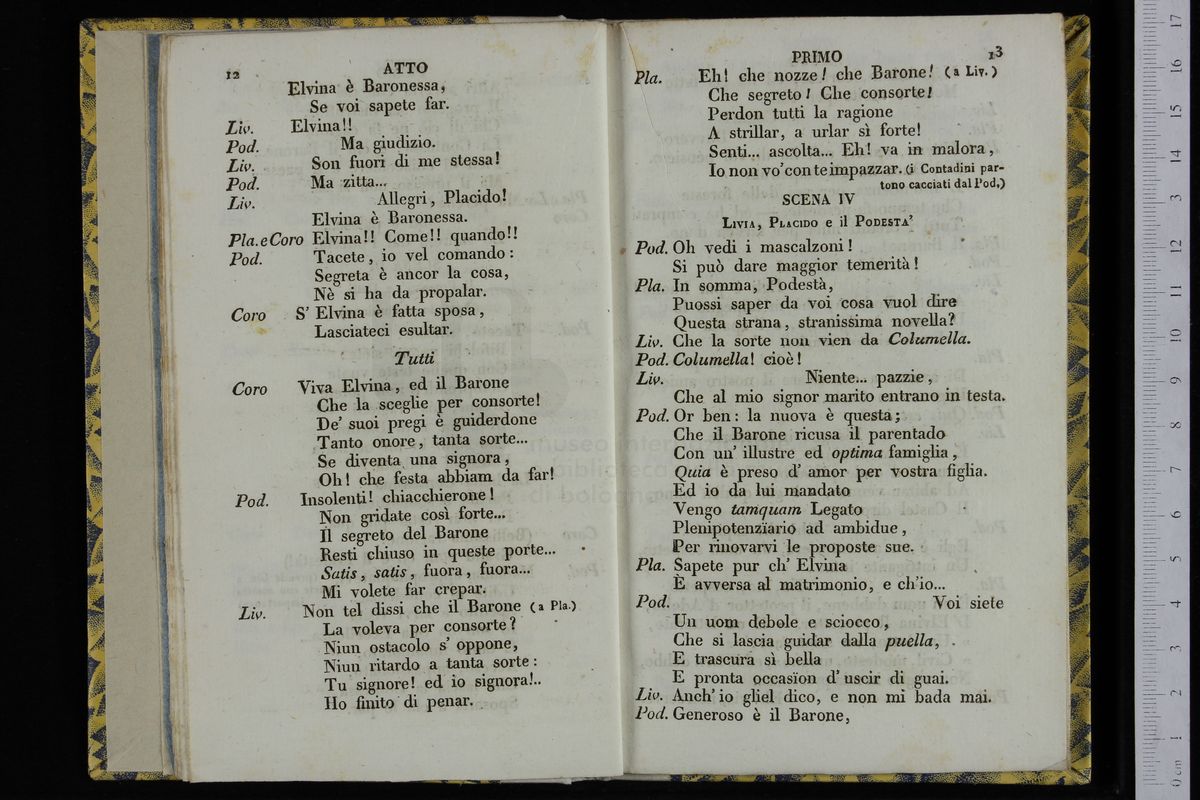 12 ATTO
Elvina è Baronessa,
Se voi sapete far.
Liv. Elvina!!
Pod. Ma giudizio.
Liv. Son fuori di me stessa!
Pod. Ma zitta...
Liv. Allegri, Placido!
Elvina è Baronessa.
Pla. e Coro Elvina!! Come!! quando!!
Pod. Tacete, io vel comando:
Segreta è ancor la cosa,
Nè si ha da propalar.
Coro S' Elvina è fatta sposa,
Lasciateci esultar.
Tutti
Coro Viva Elvina, ed il Barone
Che la sceglie per consorte!
De' suoi pregi è guiderdone
Tanto onore, tanta sorte...
Se diventa una signora,
Oh! che festa abbiam da far!
Pod. Insolenti! chiacchierone!
Non gridate così forte...
Il segreto del Barone
Resti chiuso in queste porte...
Satis, satis, fuora, fuora...
Mi volete far crepar.
Liv. Non tel dissi che il Barone (a Pla.)
La voleva per consorte?
Niun ostacolo s' oppone,
Niun ritardo a tanta sorte:
Tu signore! ed io signora!..
Ho finito di penar.
PRIMO 13
Pla. Eh! che nozze! che Barone! (a Liv.)
Che segreto! Che consorte!
Perdon tutti la ragione
A strillar, a urlar sì forte!
Senti... ascolta... Eh! va in malora,
Io non vo' con te impazzar. (i Contadini par-
tono cacciati dal Pod.)
SCENA IV
LIVIA, PLACIDO e il PODESTA'
Pod. Oh vedi i mascalzoni!
Si può dare maggior temerità!
Pla. In somma, Podestà,
Puossi saper da voi cosa vuol dire
Questa strana, stranissima novella?
Liv. Che la sorte non vien da Columella.
Pod. Columella! cioè!
Liv. Niente... pazzie,
Che al mio signor marito entrano in testa.
Pod. Or ben: la nuova è questa;
Che il Barone ricusa il parentado
Con un' illustre ed optima famiglia,
Quia è preso d' amor per vostra figlia.
Ed io da lui mandato
Vengo tamquam Legato
Plenipotenziario ad ambidue,
Per rinovarvi le proposte sue.
Pla. Sapete pur ch' Elvina
È avversa al matrimonio, e ch'io...
Pod. Voi siete
Un uom debole e sciocco,
Che si lascia guidar dalla puella,
E trascura sì bella
E pronta occasïon d' uscir di guai.
Liv. Anch' io gliel dico, e non mi bada mai.
Pod. Generoso è il Barone,